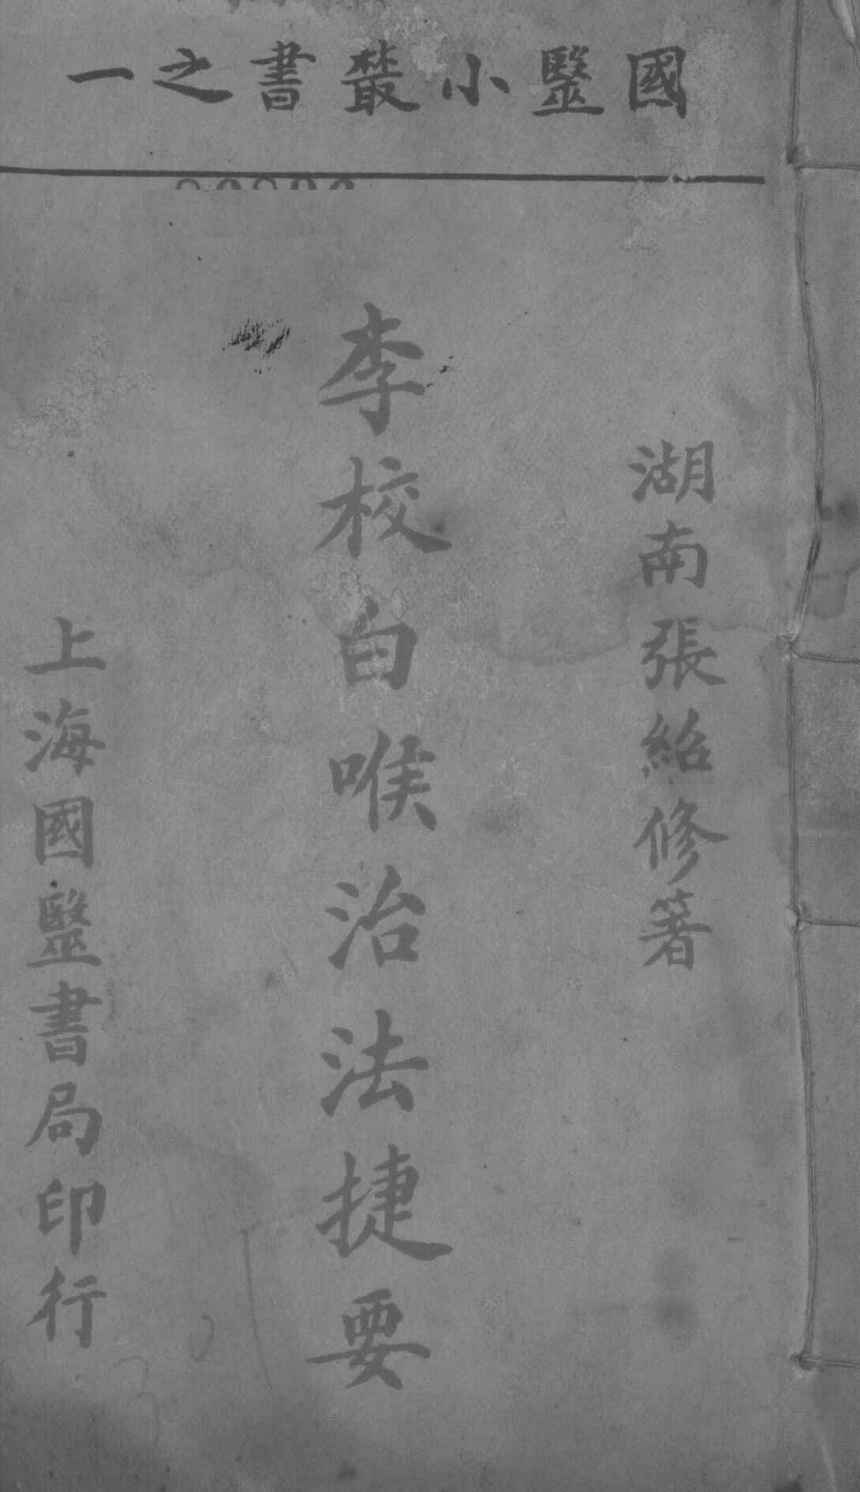 國毉小叢書之一
湖南張紹修著
李校白喉治法捷要
上海國毉書局印行